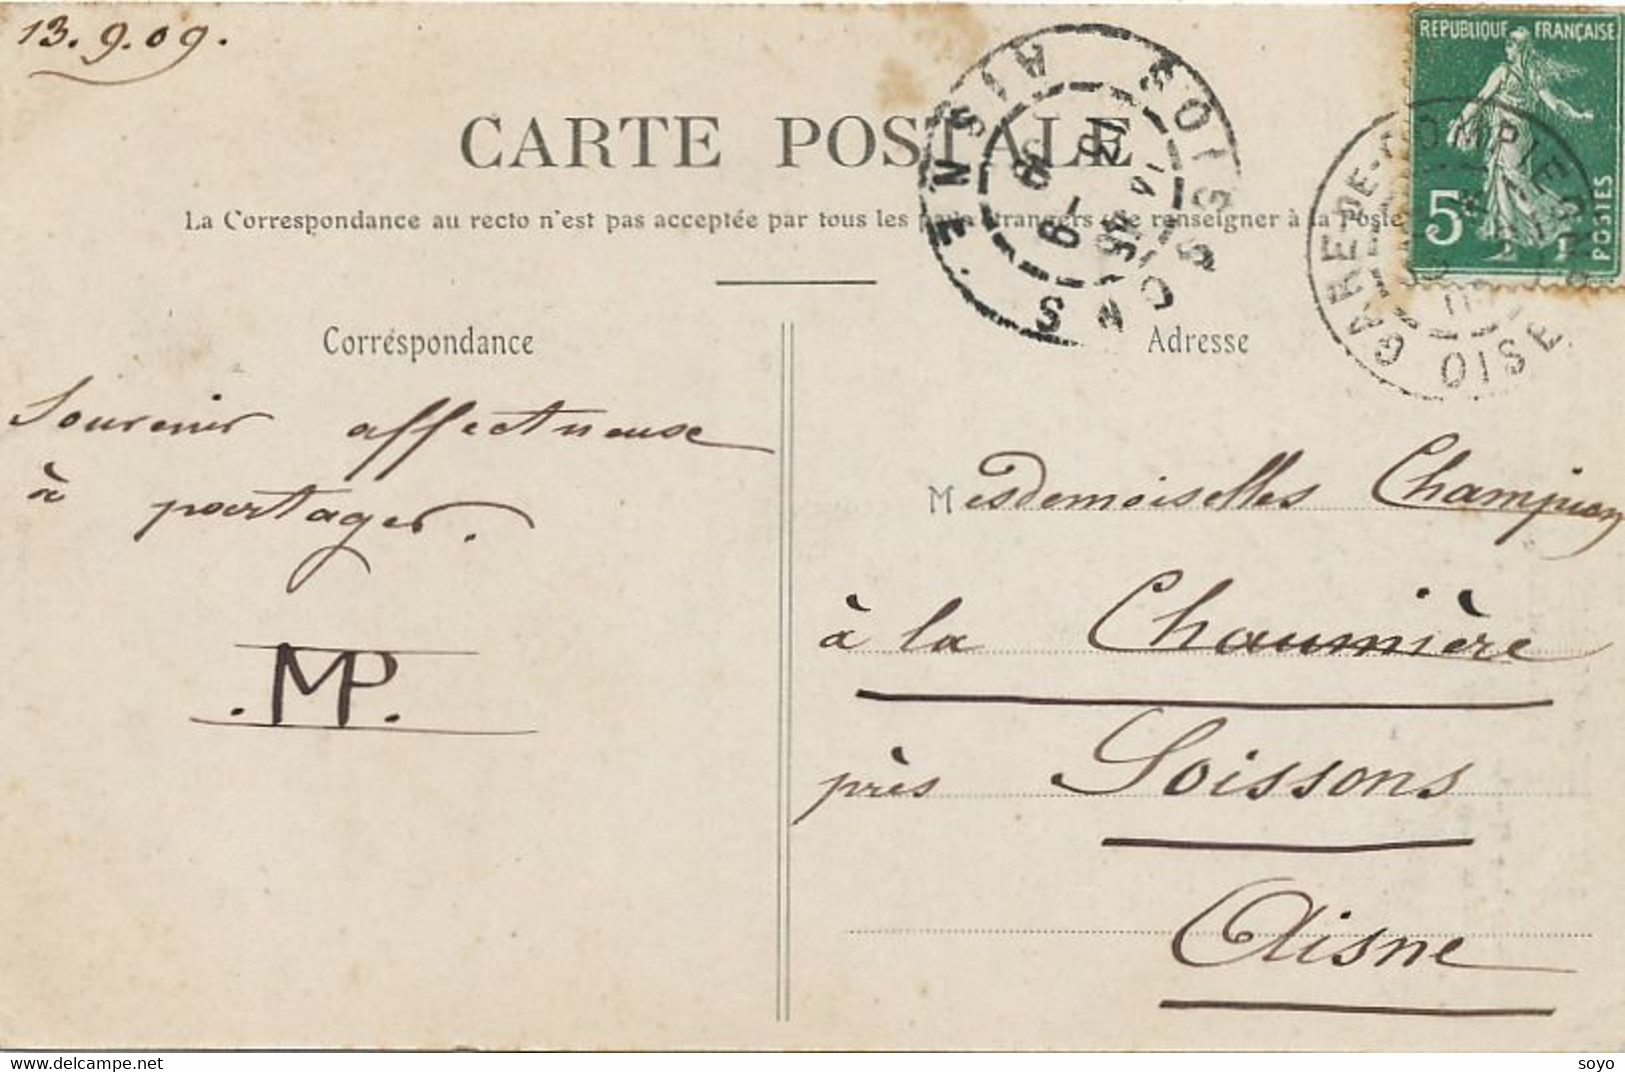 13.9.09.
CARTE POSTALE
La Correspondance au recto n'est pas acceptée par tous les pays étrangers (se renseigner à la Poste
Correspondance
Souvenir affectueuse
à partager.
.MP.
Adresse
Mesdemoiselles Champion
à la Chaumière
près Soissons
Aisne
REPUBLIQUE FRANÇAISE
5c
POSTES
SOISSONS
AISNE
GARE-DE-COMPIEGNE
OISE
soyo